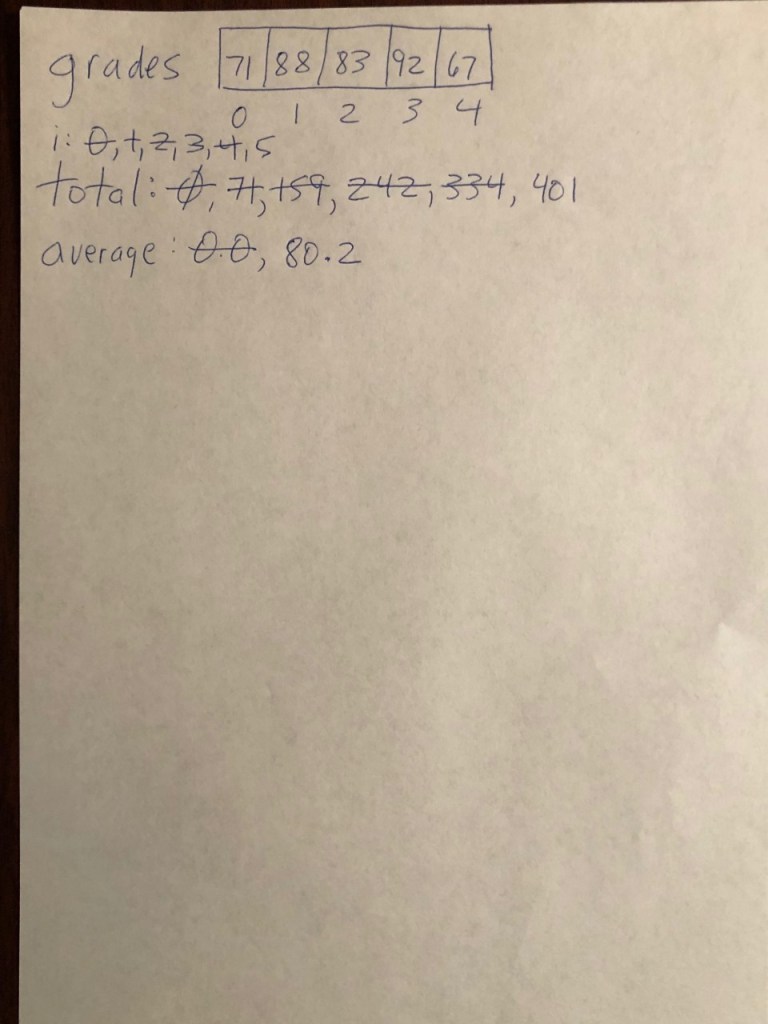 grades 71 88 83 92 67
0 1 2 3 4
i: 0, 1, 2, 3, 4, 5
total: 0, 71, 159, 242, 334, 401
average: 0.0, 80.2